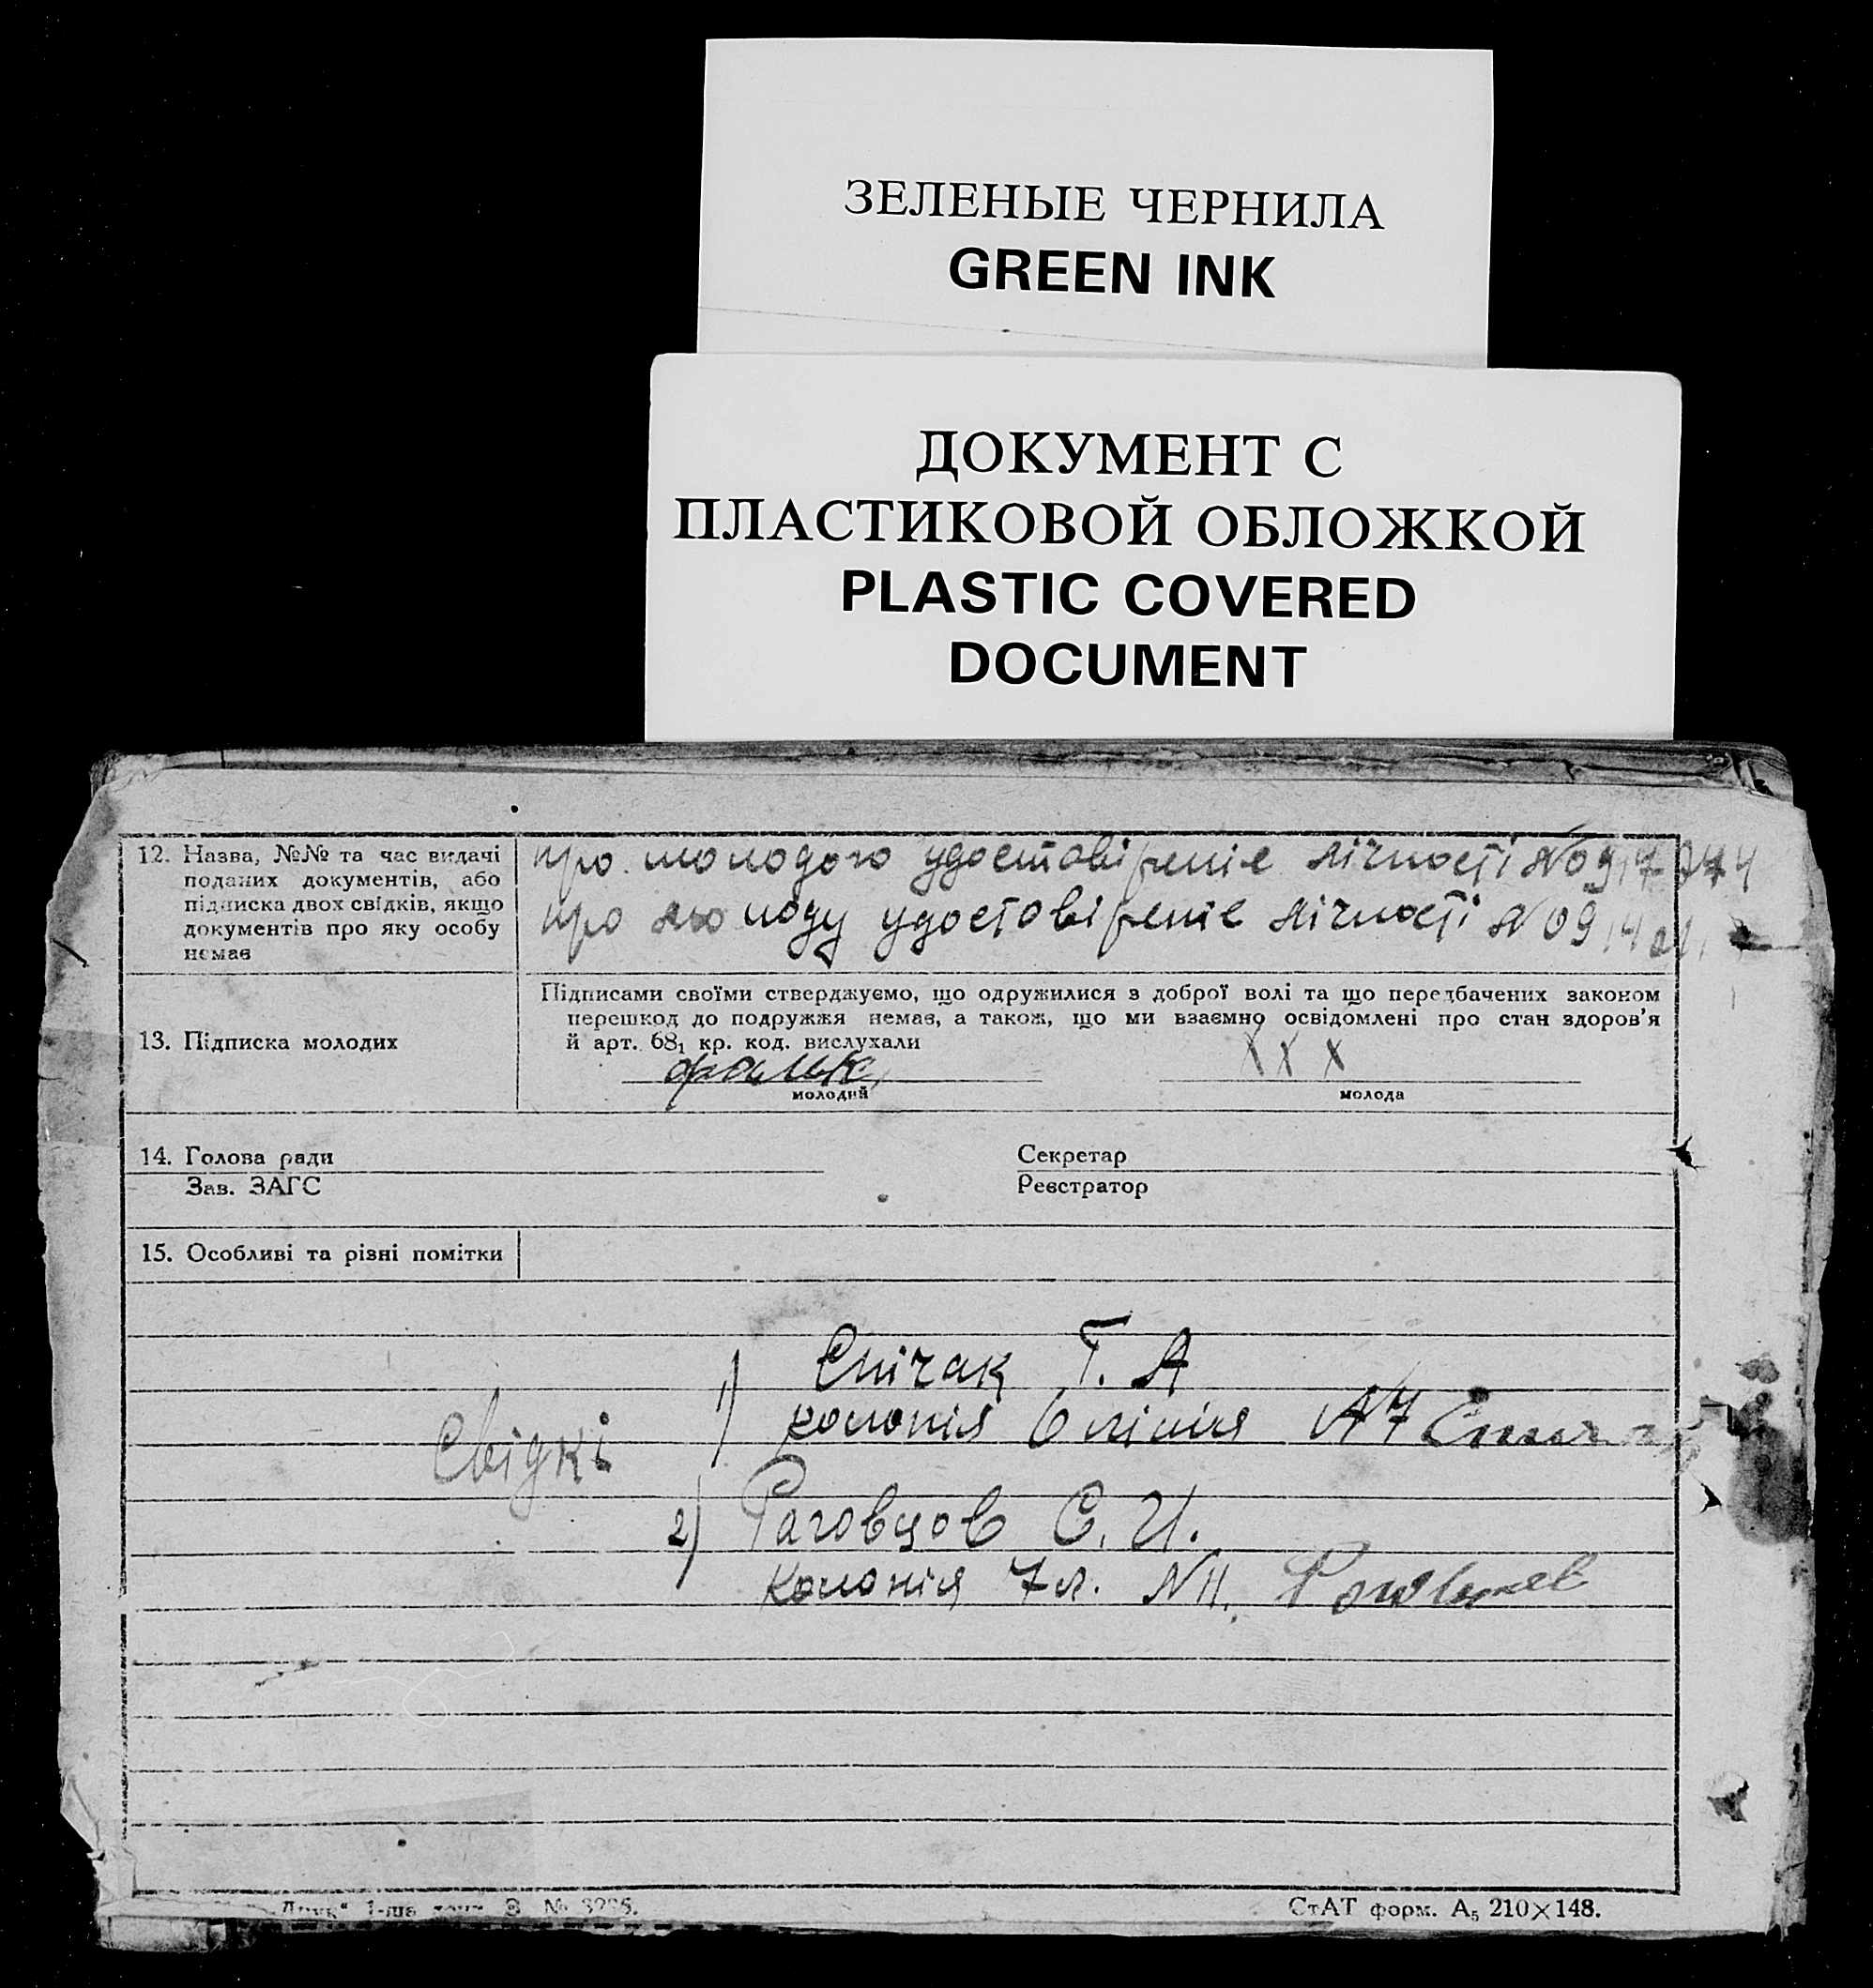 ЗЕЛЕНЫЕ ЧЕРНИЛА
GREEN INK
ДОКУМЕНТ С
ПЛАСТИКОВОЙ ОБЛОЖКОЙ
PLASTIC COVERED
DOCUMENT
12. Назва, №№ та час видачі
поданих документів, або
підписка двох свідків, якщо
документів про яку особу
немає
про молодого удостовіреніе лічності №
про молоду удостовіреніе лічності №
13. Підписка молодих
Підписами своїми стверджуємо, що одружилися з доброї волі та що передбачених законом
перешкод до подружжя немає, а також, що ми взаємно освідомлені про стан здоров'я
й арт. 68₁ кр. код. вислухали
X X X
молодий
молода
14. Голова ради
Секретар
Зав. ЗАГС
Реєстратор
15. Особливі та різні помітки
Свідкі
1) Спічак Г. А
колонія 6 лінія №7
2) Раговцов С. И.
колонія 7 л. №11.
СтАТ форм. А₅ 210×148.